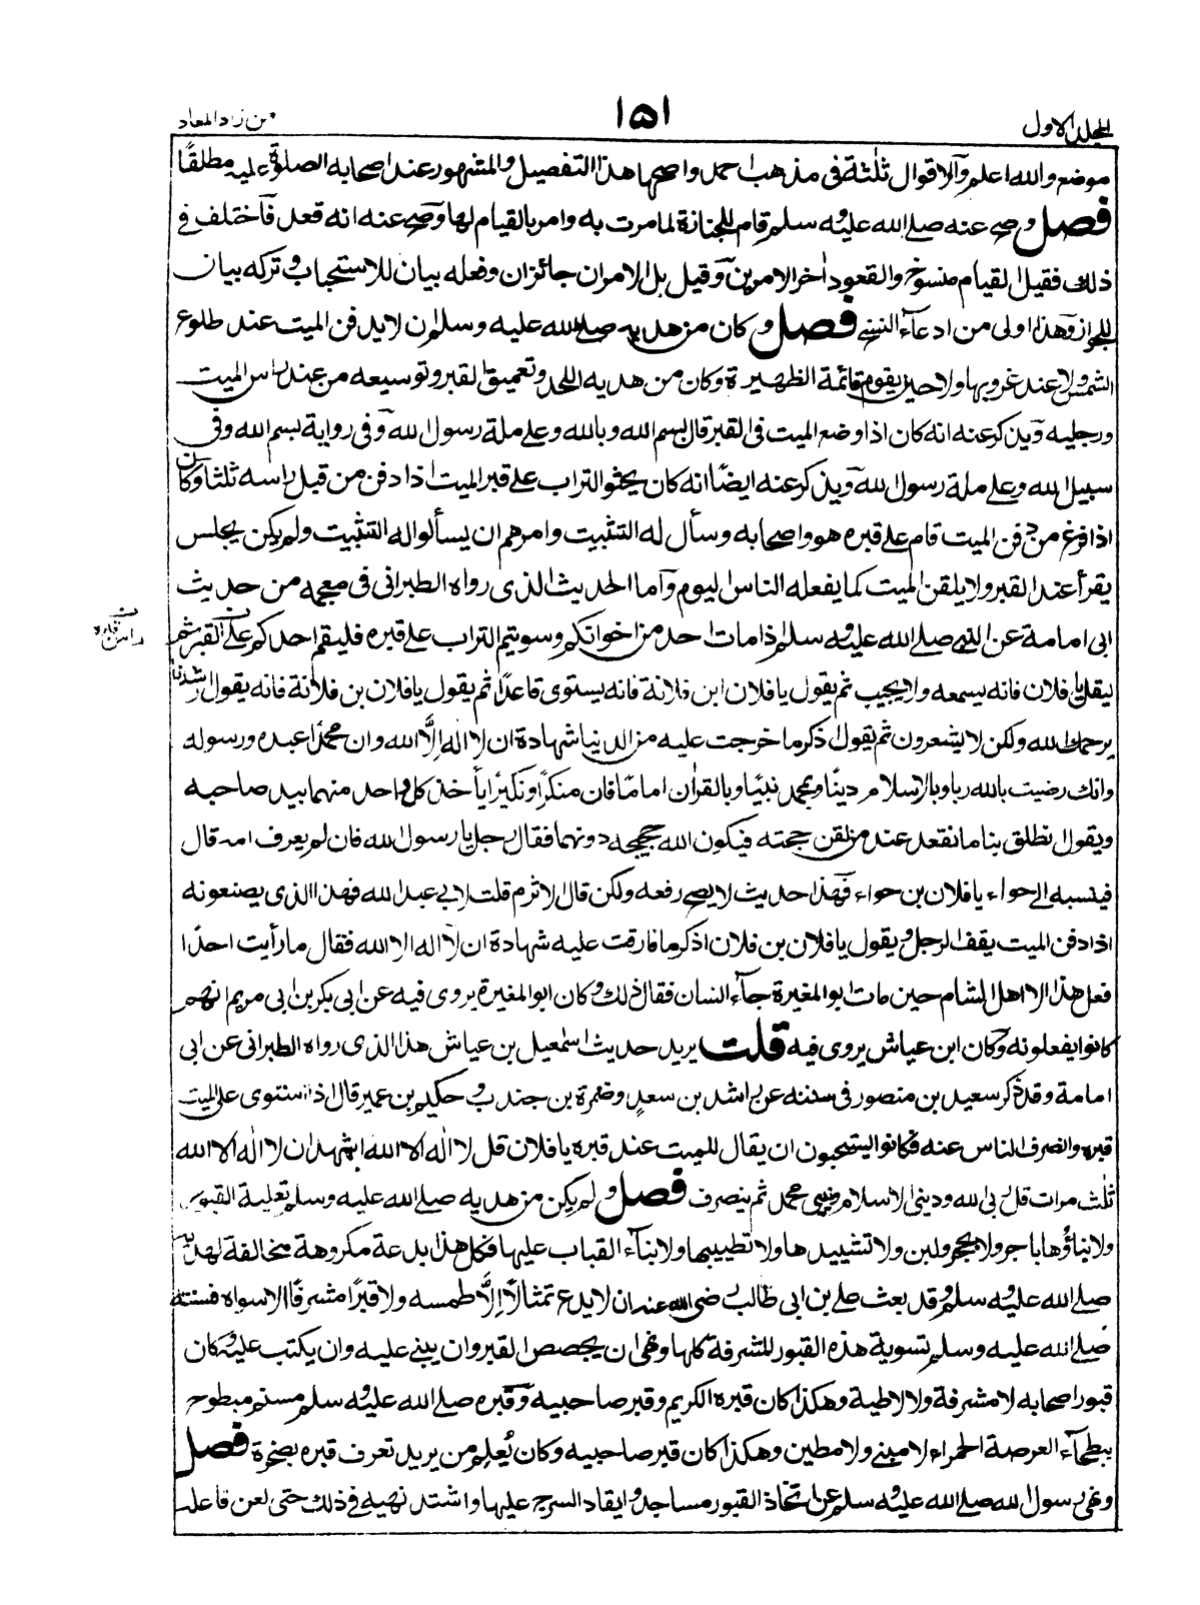 المجلد الاول
١٥١
من زاد المعاد
موضع والله اعلم والاقوال ثلثة فى مذهب احمد واصحها هذا التفصيل والمشهور عند اصحابه الصلوة عليه مطلقًا
فصل وصح عنه صلے الله عليه وسلم قام للجنازة لما مرت به وامر بالقيام لها وصح عنه انه قعد فاختلف فے
ذلك فقيل القيام منسوخ والقعود اٰخر الامرين وقيل بل الامران جائزان وفعله بيان للاستحباب وتركه بيان
للجواز وهذا اولى من ادعاء النسخ فصل وكان من هديه صلے الله عليه وسلم ان لا يدفن الميت عند طلوع
الشمس ولا عند غروبها ولا حين يقوم قائمة الظهيرة وكان من هديه اللحد وتعميق القبر وتوسيعه من عند راس الميت
ورجليه ويذكر عنه انه كان اذا وضع الميت فى القبر قال بسم الله وبالله وعلى ملة رسول الله وفى رواية بسم الله وفى
سبيل الله وعلى ملة رسول الله ويذكر عنه ايضًا انه كان يحثو التراب على قبر الميت اذا دفن من قبل راسه ثلثا وكان
اذا فرغ من دفن الميت قام على قبره هو واصحابه وسأل له التثبيت وامرهم ان يسألوا له التثبيت ولم يكن يجلس
يقرأ عند القبر ولا يلقن الميت كما يفعله الناس اليوم واما الحديث الذى رواه الطبرانى فى معجمه من حديث
ابى امامة عن النبے صلے الله عليه وسلم اذا مات احد من اخوانكم وسويتم التراب على قبره فليقم احدكم على القبر ثم
ليقل يا فلان فانه يسمعه ولا يجيب ثم يقول يا فلان ابن فلانة فانه يستوى قاعدًا ثم يقول يا فلان بن فلانة فانه يقول ارشدنا
يرحمك الله ولكن لا يشعرون ثم يقول اذكر ما خرجت عليه من الدنيا شهادة ان لا اله الَّا الله وان محمدًا عبده ورسوله
وانك رضيت بالله ربا وبالاسلام دينًا وبمحمد نبيًا وبالقراٰن امامًا فان منكرًا ونكيرًا يأخذ كل واحد منهما بيد صاحبه
ويقول نطلق بنا ما نقعد عند من لقن حجته فيكون الله حجيجه دونهما فقال رجل يا رسول الله فان لم يعرف امه قال
فينسبه الى حواء يا فلان بن حواء فهذا حديث لا يصح رفعه ولكن قال الاثرم قلت لابى عبد الله فهذا الذى يصنعونه
اذا دفن الميت يقف الرجل ويقول يا فلان بن فلان اذكر ما فارقت عليه شهادة ان لا اله الا الله فقال ما رأيت احدًا
فعل هذا الا اهل الشام حين مات ابو المغيرة جاء انسان فقال ذلك وكان ابو المغيرة يروى فيه عن ابى بكر بن ابى مريم انهم
كانوا يفعلونه وكان ابن عياش يروى فيه قلت يريد حديث اسمعيل بن عياش هذا الذى رواه الطبرانى عن ابى
امامة وقد ذكر سعيد بن منصور فى سننه عن راشد بن سعد وضمرة بن جندب وحكيم بن عمير قال اذا استوى على الميت
قبره وانصرف الناس عنه فكانوا يستحبون ان يقال للميت عند قبره يا فلان قل لا اله الا الله اشهد ان لا اله الا الله
ثلٰث مرات قل ربى الله ودينى الاسلام ونبيى محمد ثم ينصرف فصل ولم يكن من هديه صلے الله عليه وسلم تعلية القبور
ولا بناؤها باجر ولا بحجر ولبن ولا تشييدها ولا تطيينها ولا بناء القباب عليها فكل هذا بدعة مكروهة مخالفة لهديه
صلے الله عليه وسلم وقد بعث على بن ابى طالب رضى الله عنه ان لا يدع تمثالًا الَّا طمسه ولا قبرًا مشرفًا الا سواه فسنته
صلے الله عليه وسلم تسوية هذه القبور المشرفة كلها ونهى ان يجصص القبر وان يبنے عليه وان يكتب عليه وكان
قبور اصحابه لا مشرفة ولا لاطية وهكذا كان قبره الكريم وقبر صاحبيه وقبره صلے الله عليه وسلم مسنم مبطوح
ببطحاء العرصة الحمراء لا مبنے ولا مطين وهكذا كان قبر صاحبيه وكان يُعلم من يريد تعرف قبره بصخرة فصل
ونهى رسول الله صلے الله عليه وسلم عن اتخاذ القبور مساجد وايقاد السرج عليها واشتد نهيه فى ذلك حتى لعن فاعله